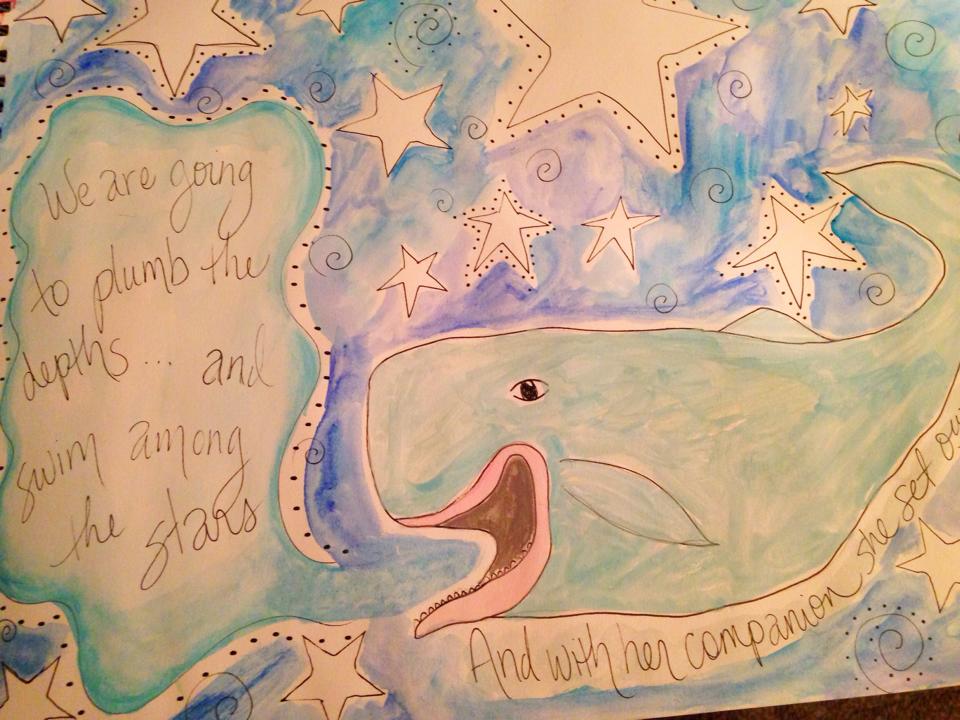 We are going
to plumb the
depths... and
swim among
the stars
And with her companion she set